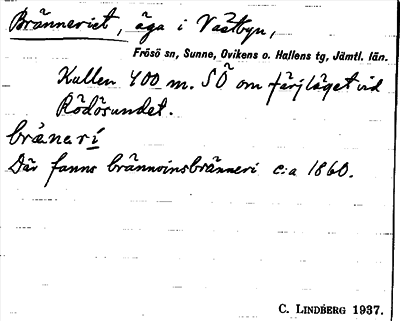 Bränneriet, äga i Västbyn,
Frösö sn, Sunne, Ovikens o. Hallens tg, Jämtl. län.
Kullen 400 m. SÖ om färjläget vid
Rödösundet.
bräneri
Där fanns brännvinsbränneri c:a 1860.
C. LINDBERG 1937.